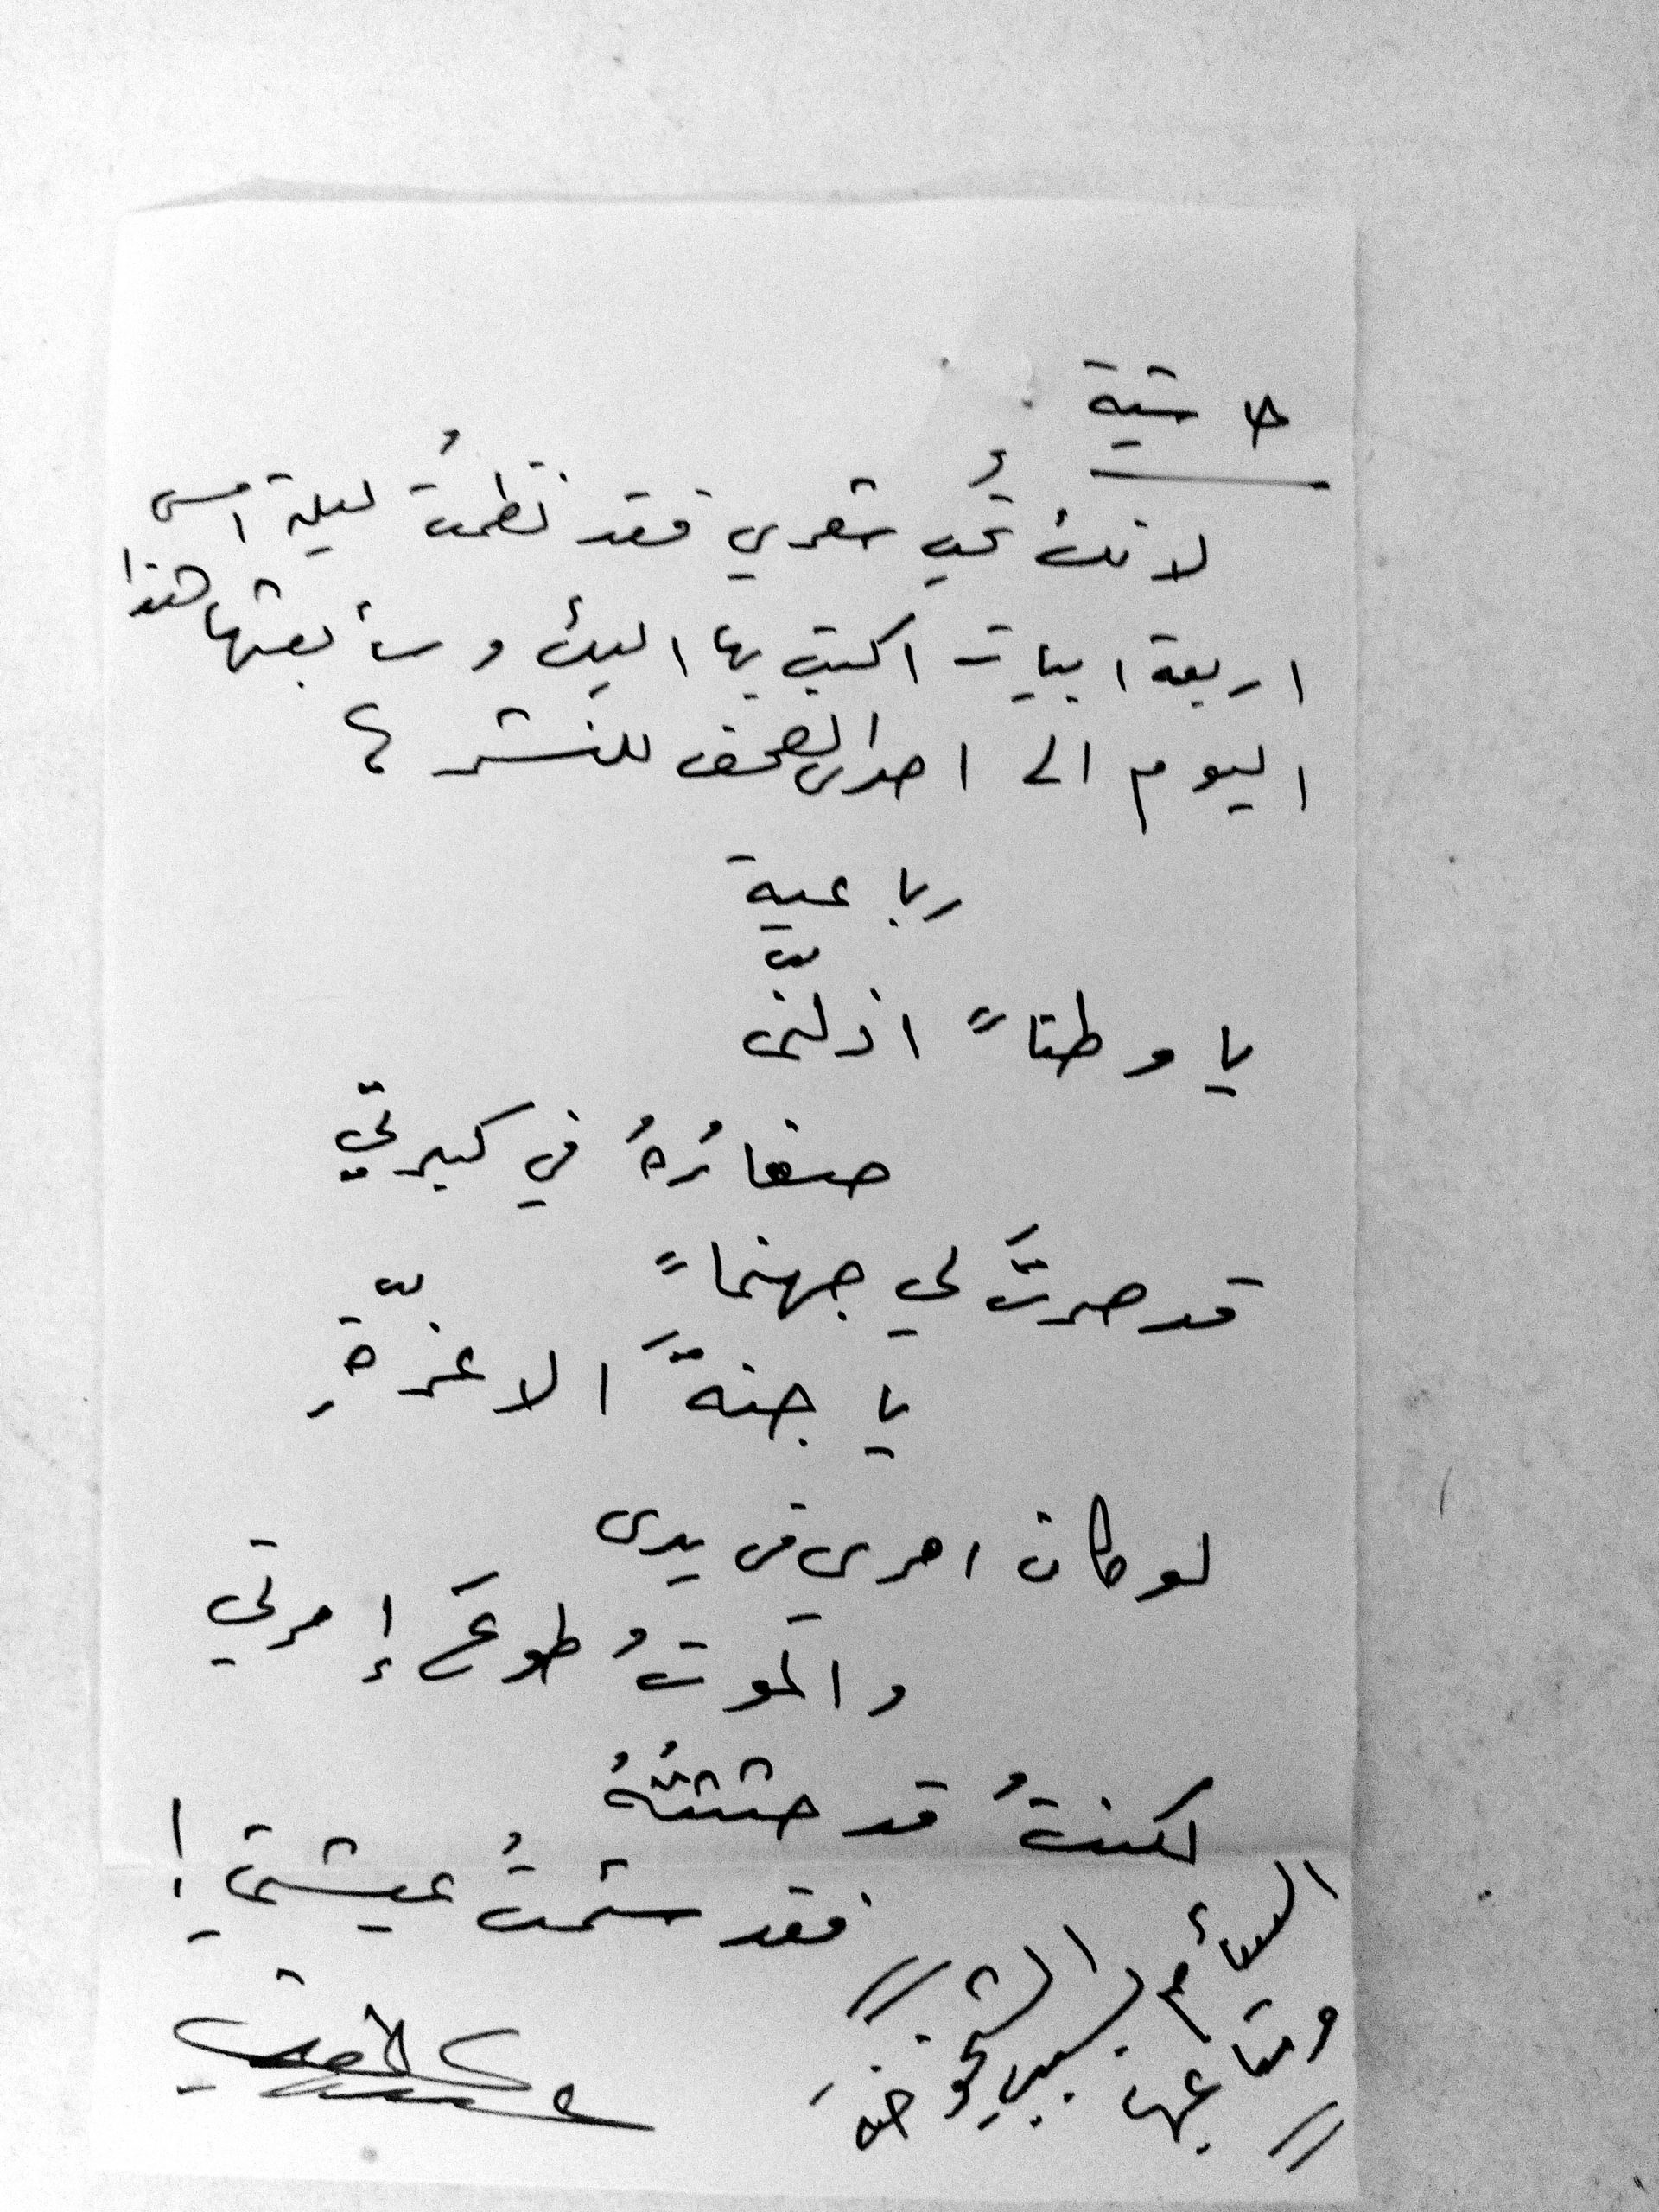 حاشية
لانك تُحب شعري فقد نظمتُ ليلة امس
اربعة ابيات اكتب بها اليك وسأبعثها هذا
اليوم الى احدى الصحف للنشر ؟
رباعية
يا وطناً اذلّني
صغائرُهُ في كبرتي
قد صرتَ لي جهنماً
يا جنةَ الاعزّةِ
لو كان امري في يدي
والموتُ طوعَ إمرتي
لكنتُ قد حثثتُهُ
فقد سئمتُ عيشتي !
السأم بسبب الشيخوخة
ومتاعبها